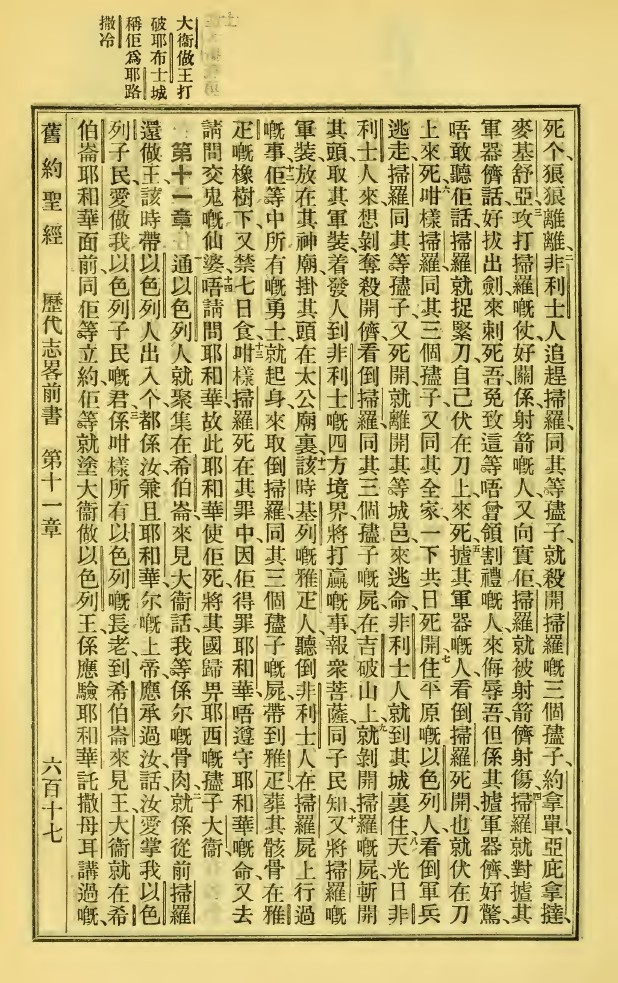 大衞做王打
破耶布士城
稱佢爲耶路
撒冷
死个狠狠離離二非利士人追趕掃羅、同其等孻子、就殺開掃羅嘅三個孻子、約拿單、亞庇拿撻、
麥基舒亞、三攻打掃羅嘅仗好關係、射箭嘅人又向實佢、掃羅就被射箭儕射傷、四掃羅就對揸其
軍器儕話、好拔出劍來刺死吾、免致這等唔曾領割禮嘅人來侮辱吾、但係其揸軍器儕好驚、
唔敢聽佢話、掃羅就捉緊刀自己伏在刀上來死、五揸其軍器嘅人看倒掃羅死開、也就伏在刀
上來死、六咁樣掃羅同其三個孻子、又同其全家一下共日死開、七住平原嘅以色列人、看倒軍兵
逃走、掃羅同其等孻子、又死開、就離開其等城邑、來逃命、非利士人就到其城裏住、八天光日非
利士人來想剝奪殺開儕、看倒掃羅同其三個孻子嘅屍在吉破山上、九就剝開掃羅嘅屍、斬開
其頭、取其軍裝、着發人到非利士嘅四方境界、將打贏嘅事報衆菩薩、同子民知、十又將掃羅嘅
軍裝放在其神廟、掛其頭在太公廟裏、十一該時基列嘅雅疋人聽倒非利士人在掃羅屍上行過
嘅事、十二佢等中所有嘅勇士、就起身來取倒掃羅同其三個孻子嘅屍、帶到雅疋、葬其骸骨在雅
疋嘅橡樹下、又禁七日食、十三咁樣掃羅死在其罪中、因佢得罪耶和華、唔遵守耶和華嘅命、又去
請問交鬼嘅仙婆、十四唔請問耶和華、故此耶和華使佢死、將其國歸畀耶西嘅孻子大衞、
第十一章 一通以色列人就聚集在希伯崙來見大衞話、我等係尔嘅骨肉、二就係從前掃羅
還做王、該時帶以色列人出入个都係汝、兼且耶和華尔嘅上帝、應承過汝話、汝愛掌我以色
列子民、愛做我以色列子民嘅君、三係咁樣所有以色列嘅長老到希伯崙來見王、大衞就在希
伯崙耶和華面前、同佢等立約、佢等就塗大衞做以色列王、係應驗耶和華託撒母耳講過嘅、
舊約聖經 歷代志畧前書 第十一章 六百十七